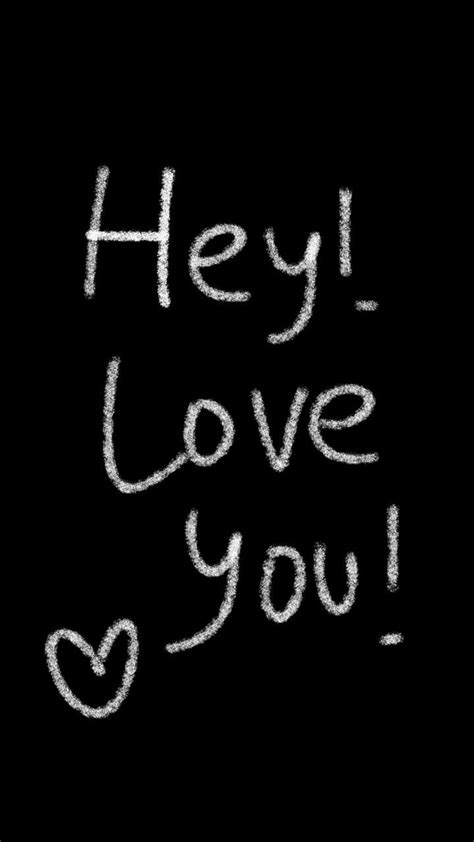 Hey!
Love
You!